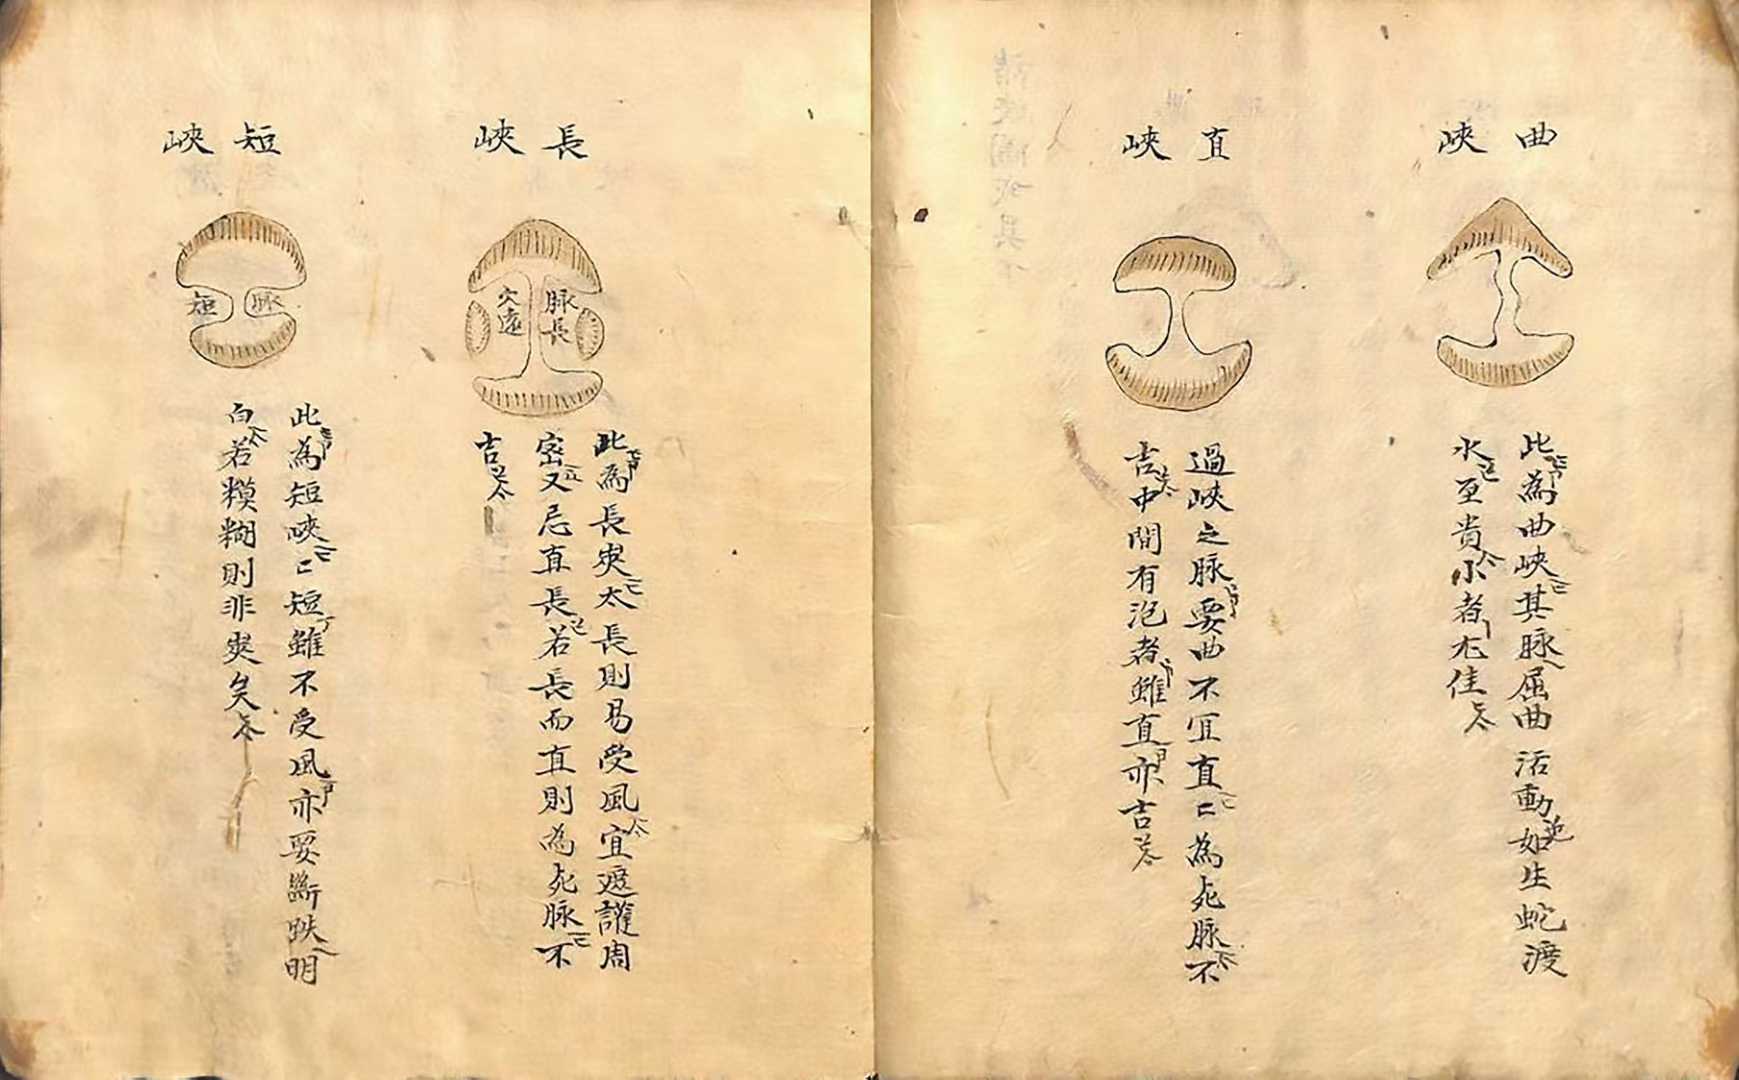 曲峽
此為曲峽其脉屈曲活動如生蛇渡
水至貴小者尤佳
直峽
過峽之脉要曲不宜直〻為死脉不
吉中間有泡者雖直亦吉
長峽
脉長
穴遠
此為長夾太長則易受風宜遮護周
密又忌直長若長而直則為死脉不
吉
短峽
脉
短
此為短峽〻短雖不受風亦要斷跌明
白若糢糊則非夾矣